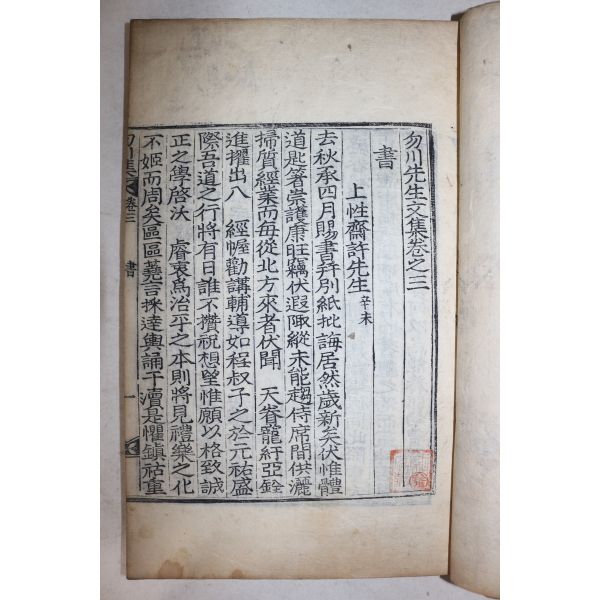 勿川先生文集卷之三
書
上性齋許先生 辛未
去秋承四月賜書幷別紙批誨居然歲新矣伏惟體
道匙箸崇護康旺竊伏遐陬縱未能趨侍席間供灑
掃質經業而每從北方來者伏聞 天眷寵紆亞銓
進擢出入 經幄勸講輔導如程叔子之於元祐盛
際吾道之行將有日誰不攢祝想望惟願以格致誠
正之學啓沃 睿衷爲治平之本則將見禮樂之化
不姬而周矣區區蕘言採達輿誦干瀆是懼鎭祜重
勿川集 卷三 書 一